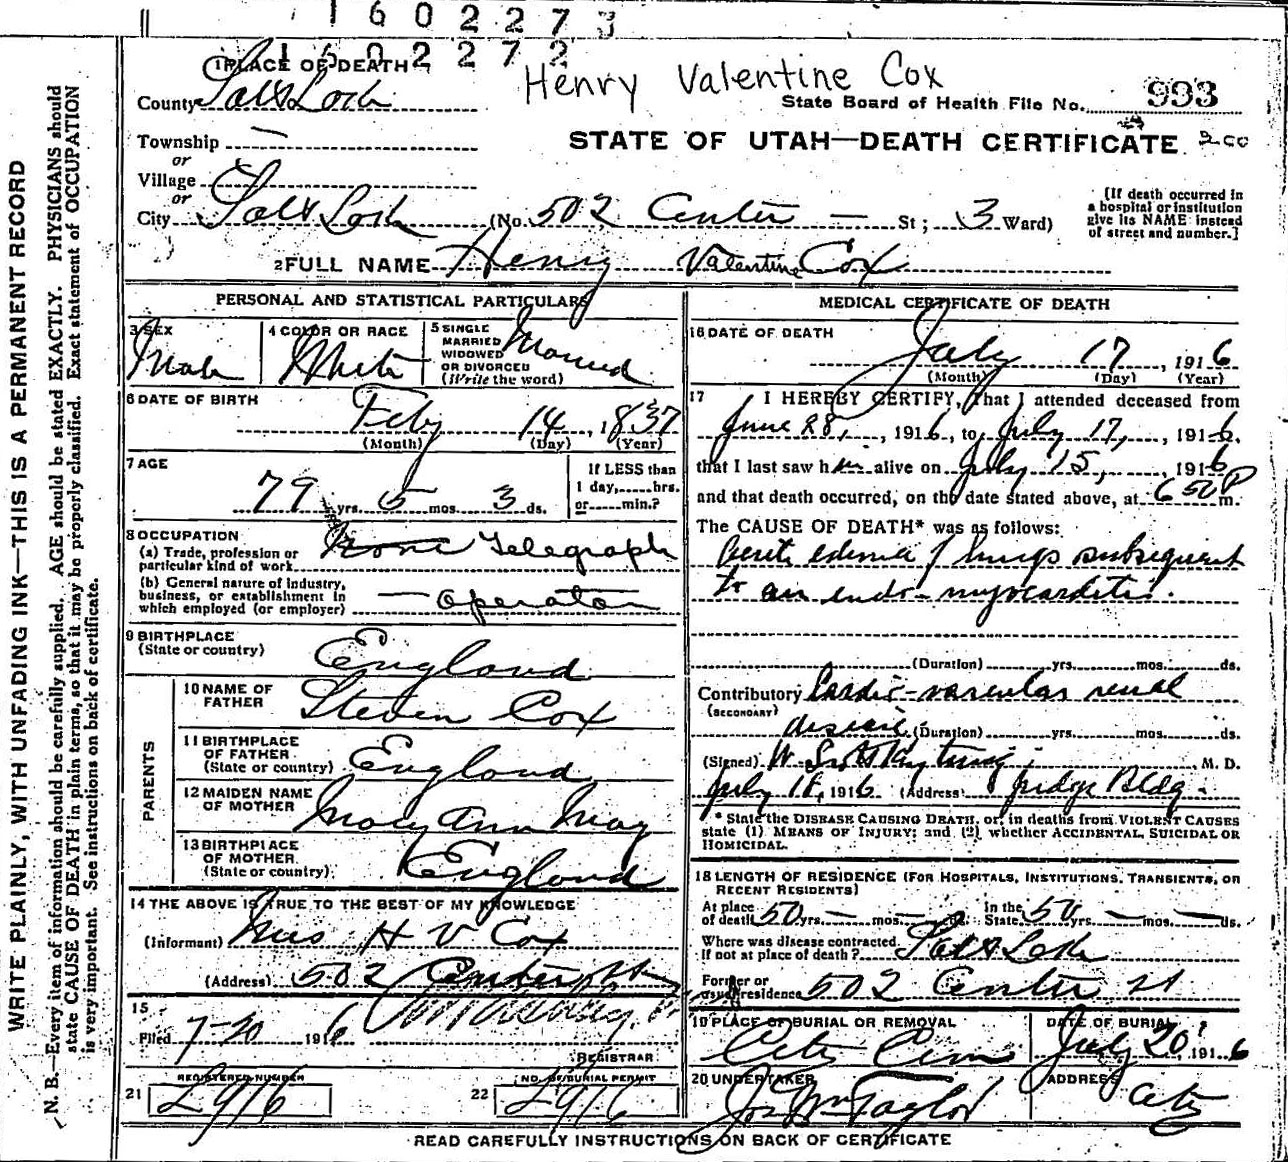 1602273
1602272
Henry Valentine Cox
1 PLACE OF DEATH
County Salt Lake
State Board of Health File No. 993
Township —
or
Village
or
City Salt Lake (No. 502 Center — St; 3 Ward)
STATE OF UTAH—DEATH CERTIFICATE
[If death occurred in
a hospital or institution
give its NAME instead
of street and number.]
2 FULL NAME Henry Valentine Cox
PERSONAL AND STATISTICAL PARTICULARS
3 SEX Male
4 COLOR OR RACE White
5 SINGLE
MARRIED
WIDOWED
OR DIVORCED
(Write the word) Married
6 DATE OF BIRTH
Feby 14, 1837
(Month) (Day) (Year)
7 AGE
79 yrs. 5 mos. 3 ds.
If LESS than
1 day, hrs.
or min.?
8 OCCUPATION
(a) Trade, profession or
particular kind of work None Telegraph
(b) General nature of industry,
business, or establishment in
which employed (or employer) — operator
9 BIRTHPLACE
(State or country) England
PARENTS
10 NAME OF
FATHER Steven Cox
11 BIRTHPLACE
OF FATHER
(State or country) England
12 MAIDEN NAME
OF MOTHER Mary Ann May
13 BIRTHPLACE
OF MOTHER
(State or country) England
14 THE ABOVE IS TRUE TO THE BEST OF MY KNOWLEDGE
(Informant) Mrs H V Cox
(Address) 502 Center St
15
Filed 7-20 1916
REGISTRAR
21 REGISTERED NUMBER 2916
22 NO. OF BURIAL PERMIT 2916
MEDICAL CERTIFICATE OF DEATH
16 DATE OF DEATH
July 17, 1916
(Month) (Day) (Year)
17 I HEREBY CERTIFY, That I attended deceased from
June 28, 1916, to July 17, 1916,
that I last saw him alive on July 15, 1916
and that death occurred, on the date stated above, at 6 50 P m.
The CAUSE OF DEATH* was as follows:
Acute edema of lungs subsequent
to an endo-myocarditis.
(Duration) yrs. mos. ds.
Contributory Cardio-vascular renal
(SECONDARY)
disease (Duration) yrs. mos. ds.
(Signed) W. M. D.
July 18, 1916 (Address) Judge Bldg.
* State the DISEASE CAUSING DEATH, or, in deaths from VIOLENT CAUSES
state (1) MEANS OF INJURY; and (2) whether ACCIDENTAL, SUICIDAL OR
HOMICIDAL.
18 LENGTH OF RESIDENCE (FOR HOSPITALS, INSTITUTIONS, TRANSIENTS, OR
RECENT RESIDENTS)
At place
of death 50 yrs. — mos. — ds. In the
State 50 yrs. — mos. — ds.
Where was disease contracted
If not at place of death? Salt Lake
Former or
usual residence 502 Center St
19 PLACE OF BURIAL OR REMOVAL
City Cem
DATE OF BURIAL
July 20, 1916
20 UNDERTAKER
Jos Wm Taylor
ADDRESS
City
READ CAREFULLY INSTRUCTIONS ON BACK OF CERTIFICATE
WRITE PLAINLY, WITH UNFADING INK—THIS IS A PERMANENT RECORD
N. B.—Every item of information should be carefully supplied. AGE should be stated EXACTLY. PHYSICIANS should
state CAUSE OF DEATH in plain terms, so that it may be properly classified. Exact statement of OCCUPATION
is very important. See instructions on back of certificate.